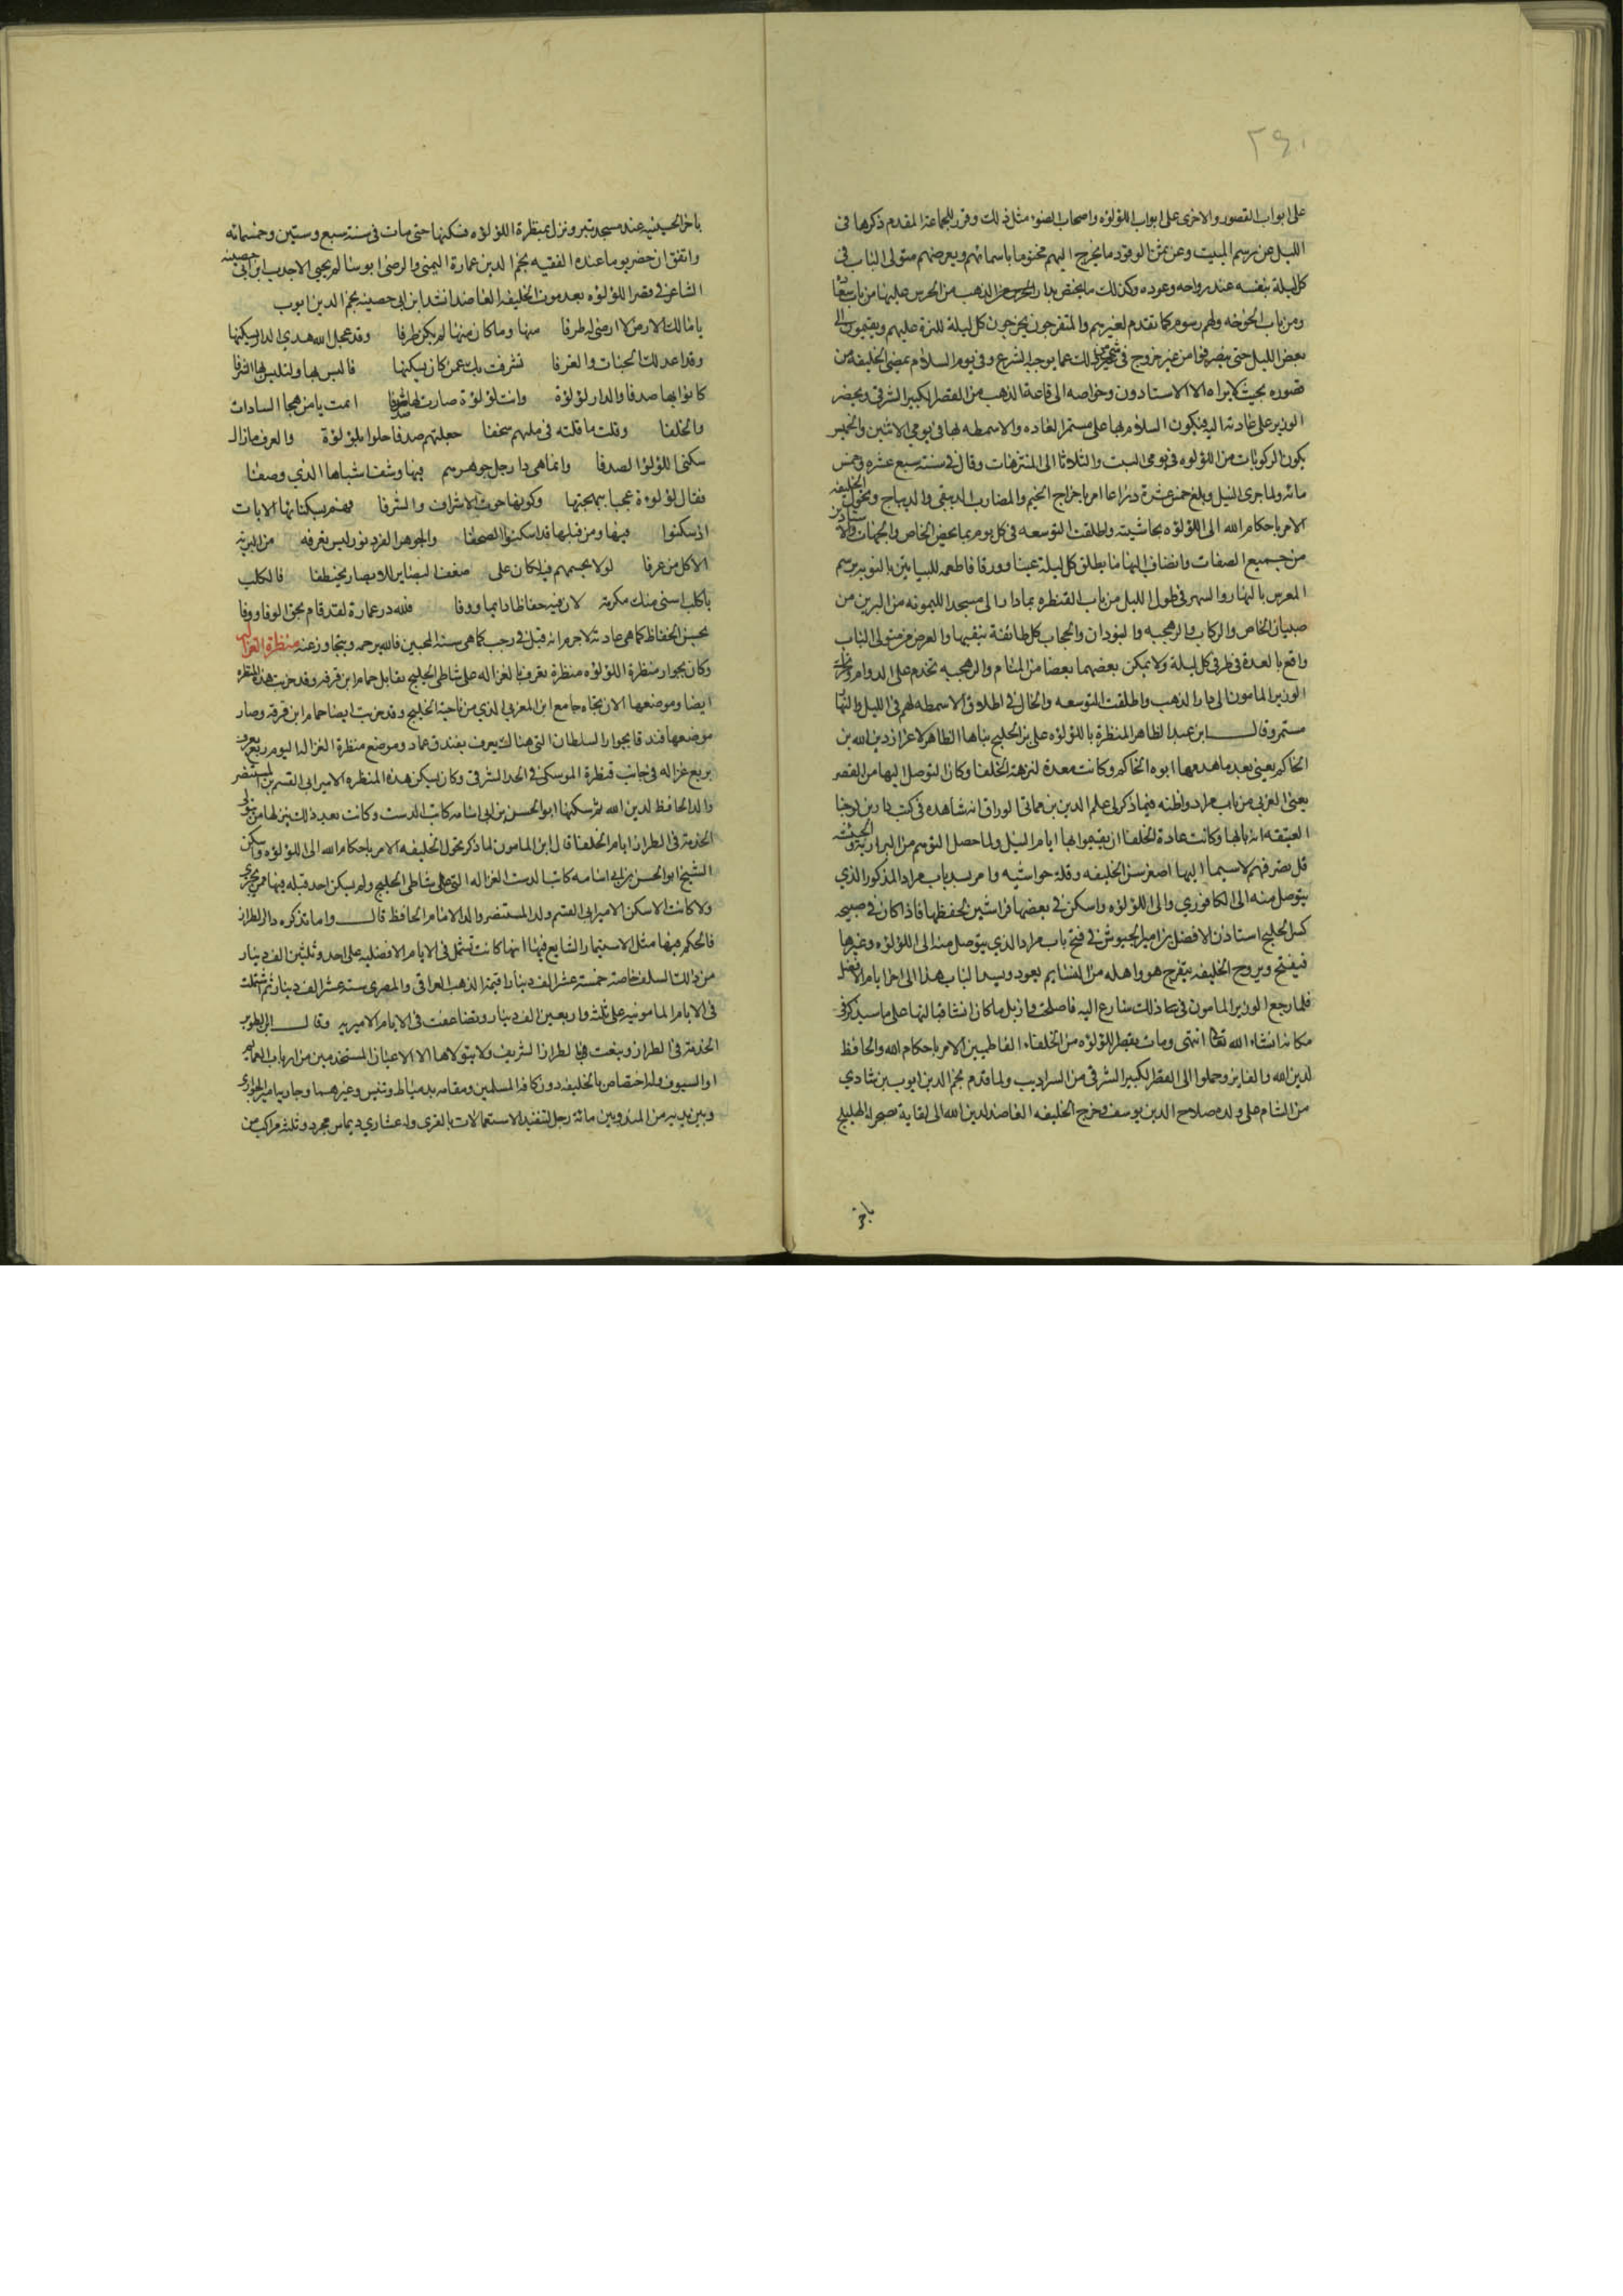 ٢٩٠
على ابواب القصور والاخرى على ابواب اللؤلؤه واصحاب الضوء مثل ذلك وقرر للجماعة المقدم ذكرها فى
الليل عن رسم المبيت وعن ثمن الوقود ما يخرج اليهم مختوما باسمائهم ويعرضهم متولى الباب فى
كل ليلة بنفسه عند رواحه وعوده وكذلك ما يختص بدار الذهب من الحرس عليها من باب سعاده
ومن باب الخوخه ولهم رسوم كما تقدم لغيرهم والمتفرجون يخرجون كل ليلة للنزهة عليهم ويقيمون الى
بعض الليل حتى ينصرفوا من غير خروج فى شئ من ذلك عما يوجبه الشرع وفى يوم السلام يمضى الخليفه من
قصوره بحيث لا يراه الا الاستادون وخواصه الى قاعة الذهب من القصر الكبير الشرقى ويحضر
الوزير على عادته اليه فيكون السلام بها على مستمر العاده والاسمطه بها فى يومى الاثنين والخميس
يكون الركوبات من اللؤلؤه فى يومى السبت والثلاثا الى المنتزهات وقال فى سنة سبع عشره وخمس
مائه ولما جرى النيل وبلغ خمس عشرة ذراعا امر باخراج الخيم والمضارب الدبيقى والديباج وتحول الخليفه
الامر باحكام الله الى اللؤلؤه بحاشيته واطلقت التوسعه فى كل يوم بما يخص الخاص والجهات والاستادين
من جميع الصفات وانضاف اليها ما يطلق كل ليلة عينا وورقا واطعمه للبياتين بالنوبه برسم
الحرس بالنهار والسهر فى طول الليل من باب القنطره بما دار الى مسجد الليمونه من البرين من
صبيان الخاص والركاب والرهجيه والسودان والحجاب كل طائفة بنقيبها والعرض من متولى الباب
واقع بالعدة فى طرفى كل ليلة ولا يمكن بعضهم بعضا من المنام والرهجيه تخدم على الدوام وتحول
الوزير المامون الى دار الذهب واطلقت التوسعه والحال فى اطلاق الاسمطه لهم فى الليل والنهار
مستمر وقال ابن عبد الظاهر المنظرة باللؤلؤه على بر الخليج بناها الظاهر لاعزاز دين الله بن
الحاكم يعنى بعد ما هدمها ابوه الحاكم وكانت معدة لنزهة الخلفا وكان التوصل اليها من القصر
يعنى الغربى من باب مراد واظنه فيما ذكر لى علم الدين بن مماتى الوراق انه شاهده فى كتب دار ابن كوخيا
العتيقه انه بابها وكانت عادة الخلفا ان يقيموا بها ايام النيل ولما حصل التوهم من النزاريه والحشيشيه
قل تصرفهم لاسيما اليها اصغر سن الخليفه وقلة حواشيه وامر بسد باب مراد المذكور الذي
يتوصل منه الى الكافوري والى اللؤلؤه واسكن فى بعضها فراشين لحفظها فاذا كان فى صبيحة
كسر الخليج استاذن الافضل بن امير الجيوش فى فتح باب مراد الذي يتوصل منه الى اللؤلؤه وغيرها
فيفتح ويروح الخليفه يتفرج هو واهله من النسا ثم يعود ويسد الباب هذا الى اخر ايام الافضل
فلما رجع الوزير المامون فى ذلك سارع اليه فاصلحت وازيل ما كان انشا قبالتها على ما سيذكر فى
مكانه انشاء الله تعالى انتهى ومات بقصر اللؤلؤه من الخلفاء الفاطميين الامر باحكام الله والحافظ
لدين الله والفايز وحملوا الى القصر الكبير الشرقى من السراديب ولما قدم نجم الدين ايوب بن شادي
من الشام على ولده صلاح الدين يوسف وخرج الخليفه العاضد لدين الله الى لقايه بصحراء الهليلج
باخر
باخر الحسينيه عند مسجد تبر ونزل بمنظرة اللؤلؤه فسكنها حتى مات فى سنة سبع وستين وخمسمائه
واتفق ان حضر يوما عنده الفقيه نجم الدين عمارة اليمنى والرضى ابو سالم يحيى الاحدب ابن ابى حصينه
الشاعر فى قصر اللؤلؤه بعد موت الخليفه العاضد انشد ابن ابى حصينه نجم الدين ايوب
يا مالك الارض لا ارضى له طرفا منها وما كان منها لم يكن طرفا وقد عجل الله هذي الدار يسكنها
وقد اعد لك الجنات والغرفا تشرفت بك عمن كان يسكنها فالبس بها ولتلبس بك الشرفا
كانوا بها صدفا والدار لؤلؤة وانت لؤلؤة صارت لها صدفا اثمت يا من هجا السادات
والخلفا وقلت ما قلته فى ثلبهم سخفا جعلتهم صدفا حلوا بلؤلؤة والعرف ما زال
سكنى اللؤلؤ الصدفا وانما هى دار حل جوهرهم فيها وشف اشباها الذي وصفا
فقال لؤلؤة عجبا ببهجتها وكونها حوت الاشراف والشرفا فهم بسكناها الايات
اذ سكنوا فيها ومن قبلها قد اسكنوا الصحفا والجوهر الفرد نور ليس يعرفه من البريه
الا كل من عرفا لولا تجسمهم فيه لكان على ضعف البصاير للابصار مختطفا فالكلب
يا كلب اسنى منك مكرمة لان فيه حفاظا دايما ووفا فلله در عمارة لقد قام بحق الوفا ووفا
بحسن الحفاظ كما هى عادته لا جرم انه قتل فى رجب كما هى سنة المحبين فالله يرحمه ويتجاوز عنه منظرة الغزاله
وكان بجوار منظرة اللؤلؤه منظرة تعرف بالغزاله على شاطى الخليج تقابل حمام ابن قرقه وقد خربت هذه المنظره
ايضا وموضعها الان تجاه جامع ابن المغربى الذي من ناحية الخليج وقد خربت ايضا حمام ابن قرقه وصار
موضعها فندقا بجوار السلطان التى هنالك يعرف بفندق عماد وموضع منظرة الغزاله اليوم ربع يعرف
بربع غزاله فى جانب قنطرة الموسكى فى الحد الشرقى وكان يسكن هذه المنظره الامير ابى القسم بن المستنصر
والد الحافظ لدين الله ثم سكنها ابو الحسن بن ابى اسامه كاتب الدست وكانت بعد ذلك ينزلها من يتولى
الخدمة فى الطراز ايام الخلفا قال ابن المامون لما ذكر تحول الخليفه الامر باحكام الله الى اللؤلؤه واسكن
الشيخ ابو الحسن بن ابى اسامه كاتب الدست الغزاله التى على شاطى الخليج ولم يسكن احد قبله فيها ممن يجرى
ولا كانت الا سكن الامير ابى القسم ولد المستنصر والد الامام الحافظ قال واما تذكره دار الطراز
فالحكم فيها مثل الاستيمار الشايع فيها انها كانت تشتمل فى الايام الافضليه على احد وثلثين الف دينار
من ذلك السلف خاصة خمسة عشر الف دينار قيمة الذهب العراقى والمصرى ستة عشر الف دينار ثم اشتملت
فى الايام المامونيه على ثلثه واربعين الف دينار وتضاعفت فى الايام الامريه وقال ابن الطوير
الخدمة فى الطراز وينعت بالطراز الشريف ولا يتولاها الا الاعيان المستخدمين من ارباب العمايم
او السيوف وله اختصاص بالخليفه دون كافة المسلمين ومقامه بدمياط وتنيس وغيرهما وجاريه امير الجواري
وبين يديه من المندوبين مائة رجل لتنفيذ الاستعمالات بالقرى وله عشاري ديماس مجرد وثلثه مراكب من